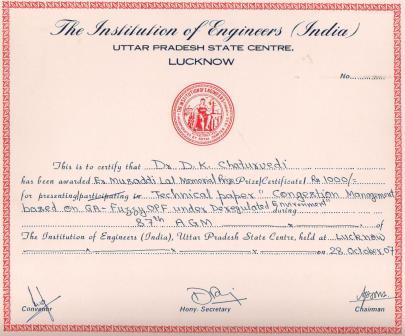 The Institution of Engineers (India)
UTTAR PRADESH STATE CENTRE,
LUCKNOW
No.............
This is to certify that Dr D. K. Chaturvedi
has been awarded Er Musaddi Lal Memorial Prize/Certificate Rs 1000/-
for presenting/participating in Technical paper "Congestion Management
based on GA-Fuzzy OPF under Deregulated Environment" during
87th AGM of
The Institution of Engineers (India), Uttar Pradesh State Centre, held at Lucknow
on 28 October 07
Convenor
Hony. Secretary
Chairman